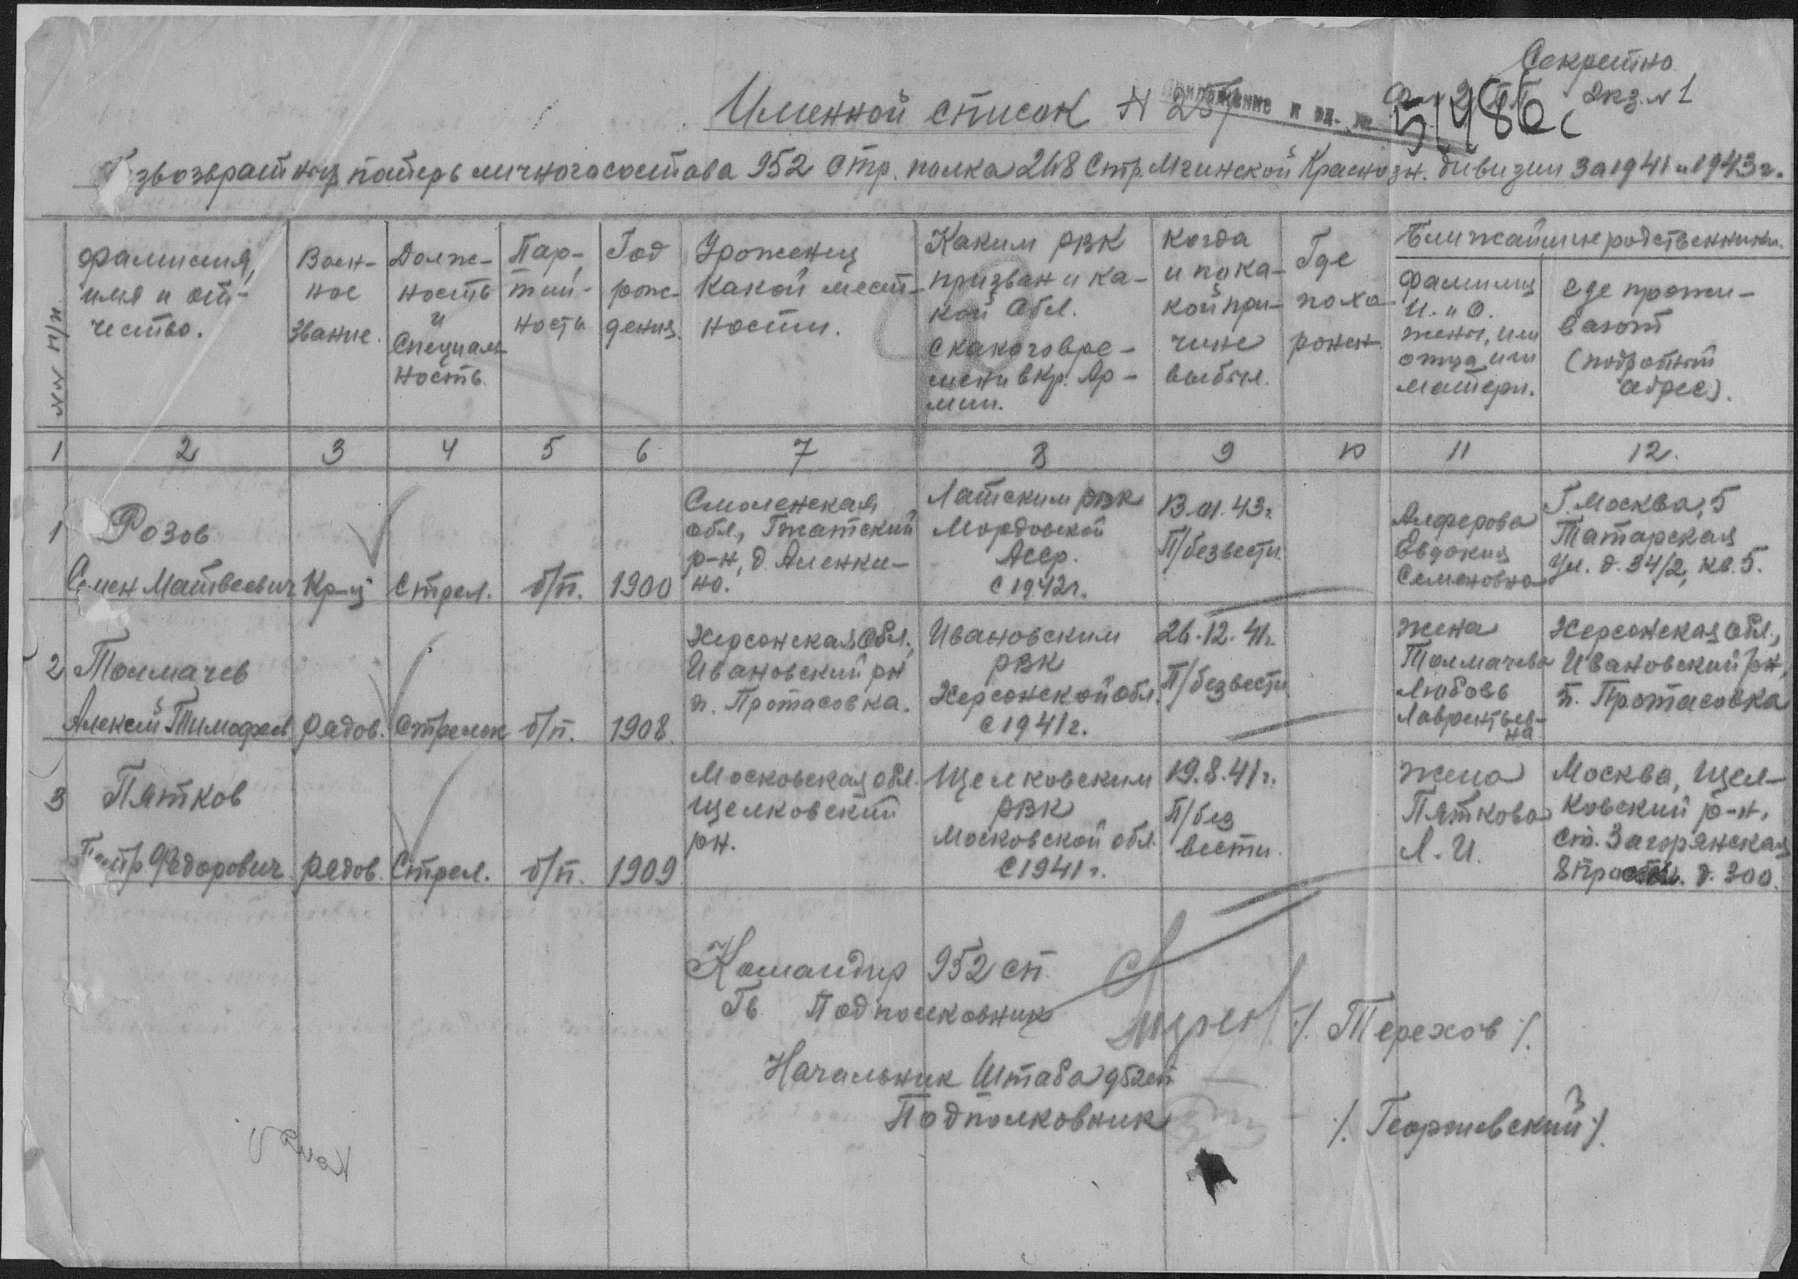 Секретно
Экз. № 1
Именной список №
Приложение к вх. №
51486с
Безвозвратных потерь личного состава 952 стр. полка 268 Стр. Мгинской Краснозн. дивизии за 1941 и 1943 г.
№№ п/п.
Фамилия,
имя и от-
чество.
Воен-
ное
звание.
Долж-
ность
и
специаль-
ность.
Пар-
тий-
ность
Год
рож-
дения.
Уроженец
какой мест-
ности.
Каким РВК
призван и ка-
кой обл.
с какого вре-
мени в Кр. Ар-
мии.
Когда
и по ка-
кой при-
чине
выбыл.
Где
похо
ронен.
Ближайшие родственники.
Фамилия
И. и О.
жены, или
отца, или
матери.
где прожи-
вают
(подробный
адрес).
1 2 3 4 5 6 7 8 9 10 11 12.
1
Розов
Семен Матвеевич
Кр-ц
Стрел.
б/п.
1900
Смоленская
обл., Гжатский
р-н, д. Аленки-
но.
РВК
Мордовской
Асср.
с 1942 г.
13.01.43 г.
П/безвести.
Алферова
Евдокия
Семеновна
Г. Москва, 5
Татарская
ул. д. 34/2, кв. 5.
2
Толмачев
Алексей Тимофеев
рядов.
Стрелок
б/п.
1908.
Херсонская обл.,
Ивановский рн
п. Протасовка.
Ивановским
РВК
Херсонской обл.
с 1941 г.
26.12.41 г.
П/безвести
жена
Толмачева
Любовь
Лаврентьев-
на
Херсонская обл.,
Ивановский рн,
п. Протасовка
3
Пятков
Петр Федорович
рядов.
Стрел.
б/п.
1909
Московская обл.
Щелковский
рн.
Щелковским
РВК
Московской обл.
с 1941 г.
19.8.41 г.
П/без
вести.
жена
Пяткова
А. И.
Москва, Щел-
ковский р-н,
ст. Загорянская
д. 300.
Командир 952 сп
Гв. Подполковник
/. Терехов /.
Начальник Штаба 952 сп
Подполковник
/. Георгиевский /.